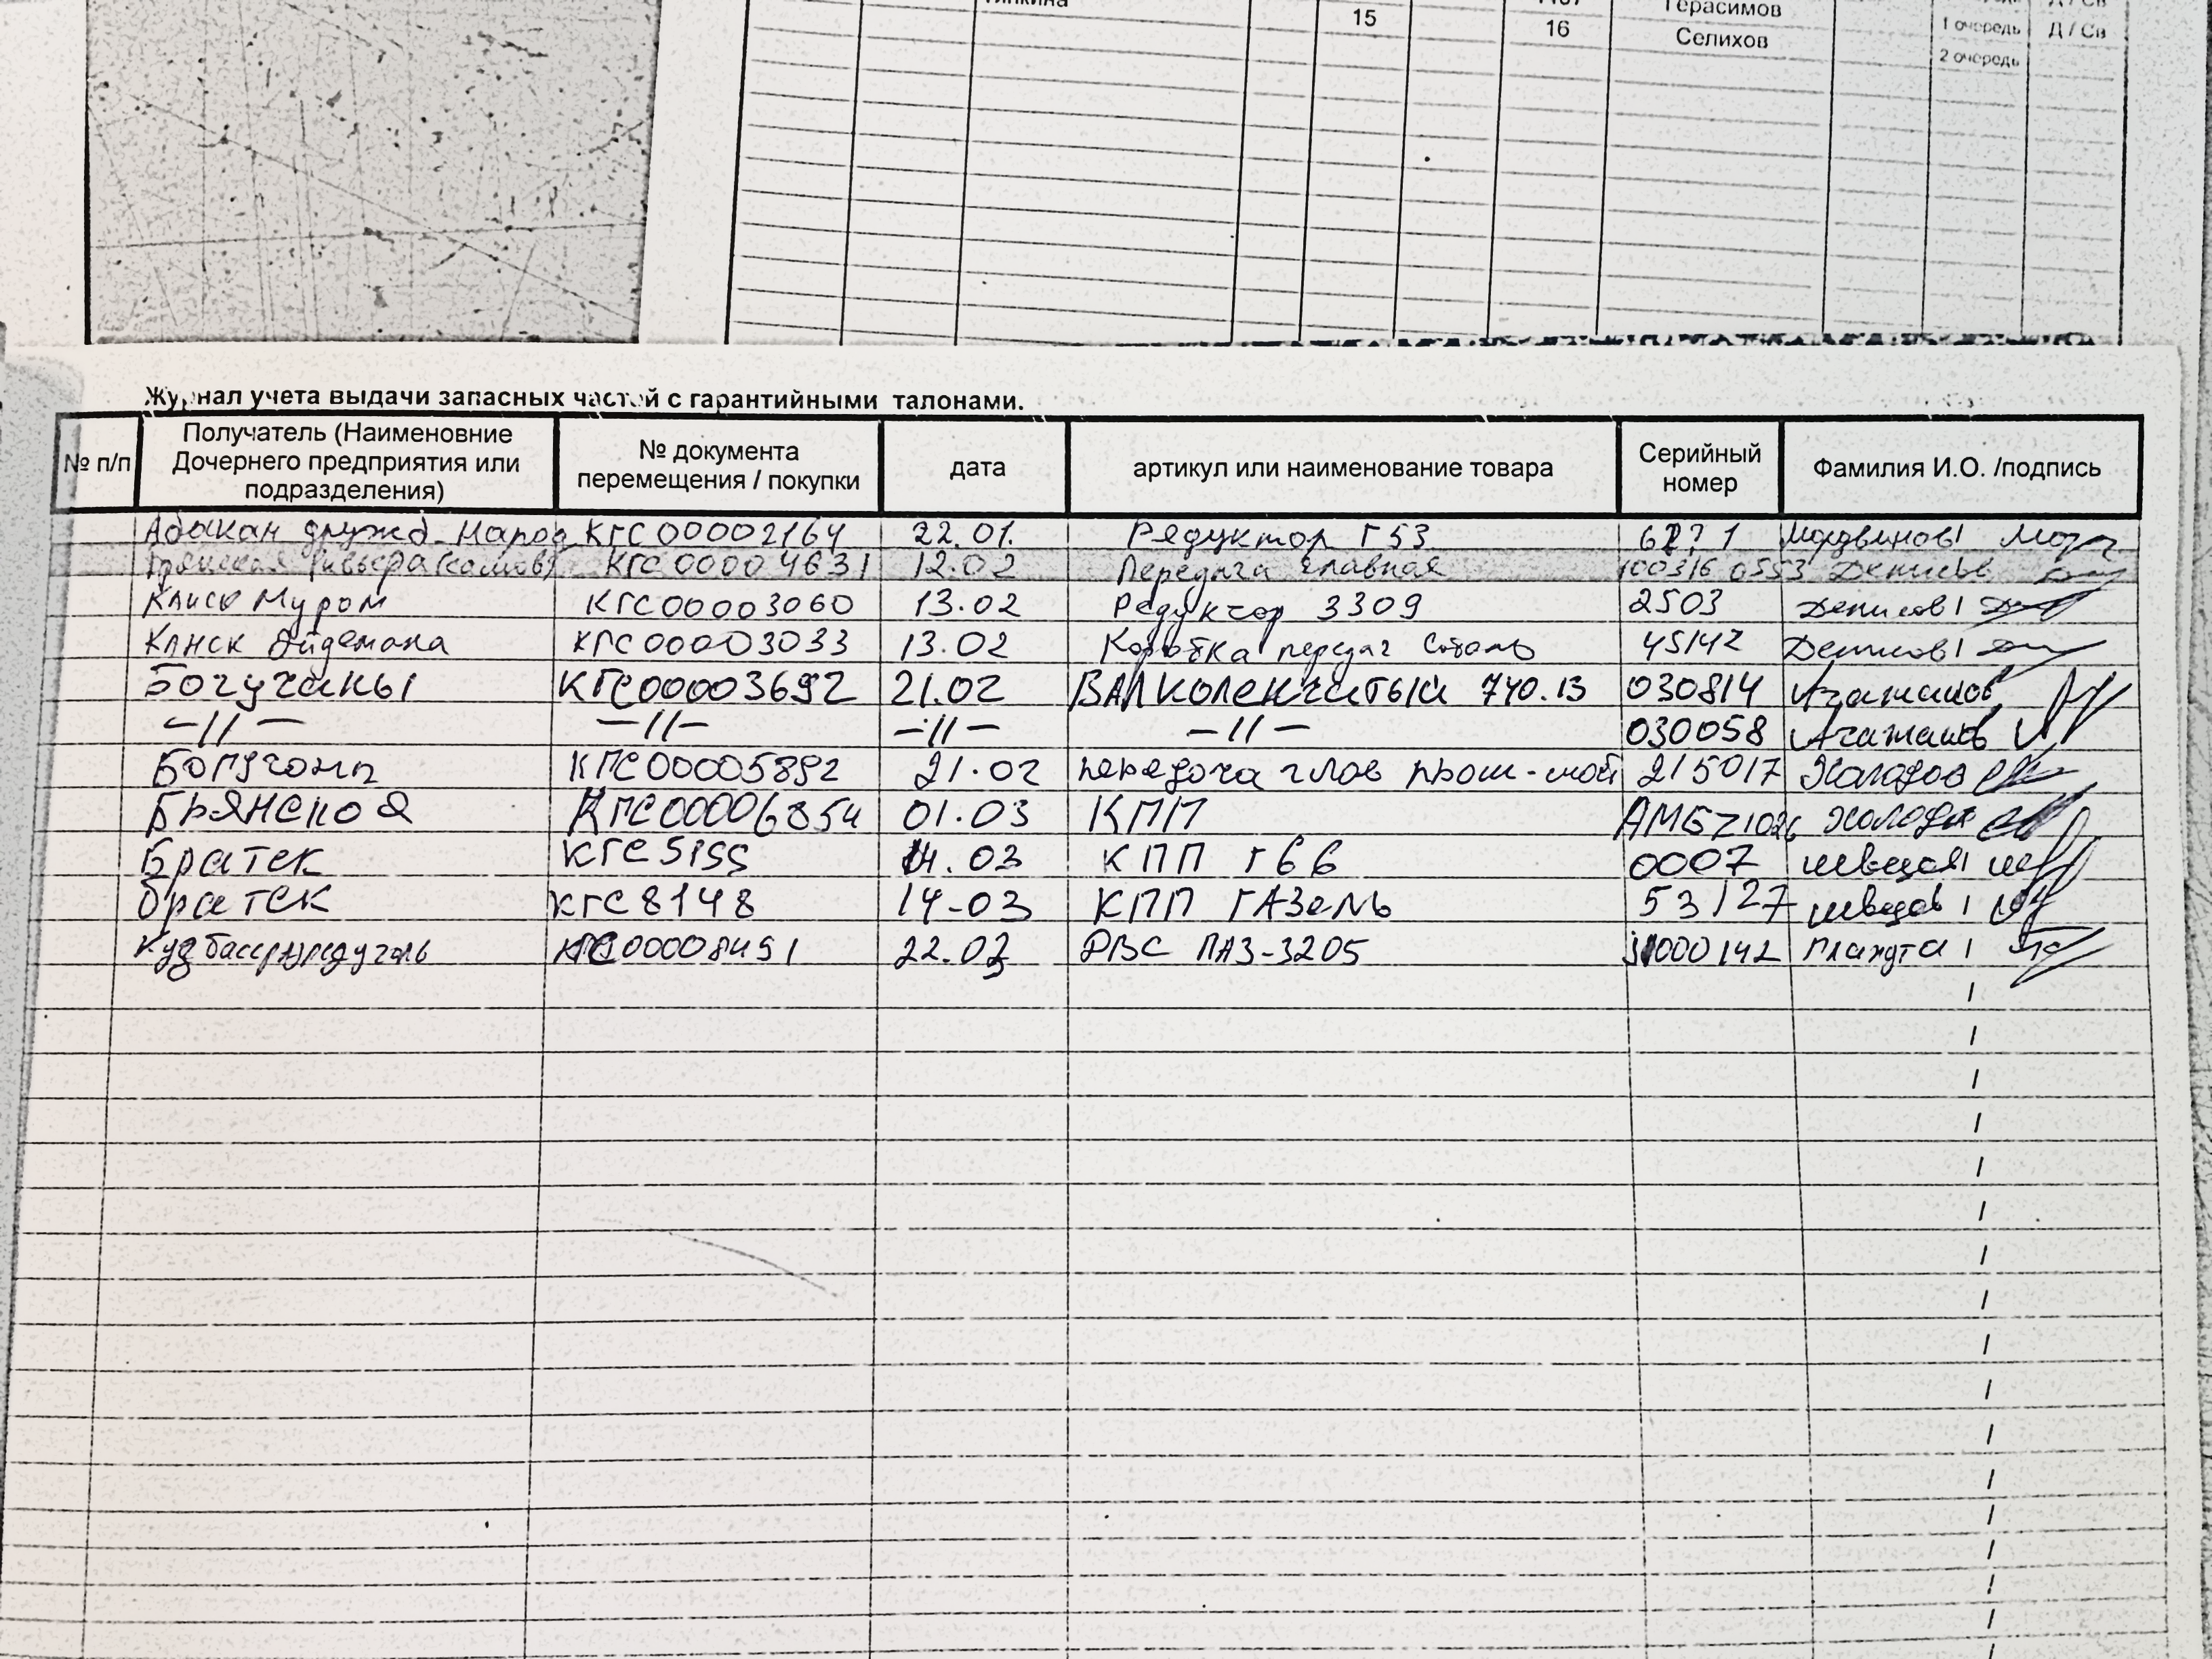 15 Герасимов
16 Селихов 1 очередь Д / Св
2 очередь
Журнал учета выдачи запасных частей с гарантийными талонами.
№ п/п Получатель (Наименовние Дочернего предприятия или подразделения) № документа перемещения / покупки дата артикул или наименование товара Серийный номер Фамилия И.О. /подпись
Абакан дружд. Народ КГС00002164 22.01. Редуктор Г53 Мордвинов
КГС00004631 12.02 Передача главная Денисов
Канск Муром КГС00003060 13.02 Редуктор 3309 2503 Денисов
Канск Эйдемана КГС00003033 13.02 Коробка передач Соболь 45142 Денисов
Богучаны КГС00003692 21.02 ВАЛ коленчатый 740.13 030814
—//— —//— —//— —//— 030058
КГС00005892 21.02 передача глав 215017 Холодов
Брянское КГС00006854 01.03 КПП
Братск КГС5155 14.03 КПП Г66 0007 Швецов
Братск КГС8148 14-03 КПП ГАЗель 53127 Швецов
КГС00008491 22.03 ДВС ПАЗ-3205